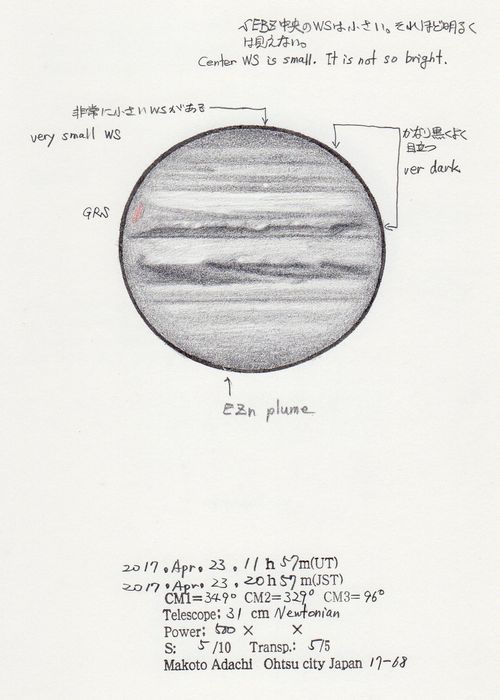 √EBZ中央のWSは小さい。それほど明るく
は見えない。
Center WS is small. It is not so bright.
非常に小さいWSがある
very small WS
かなり黒くよく
目立つ
ver dark
GRS
EZn plume
2017. Apr. 23. 11 h 57m(UT)
2017. Apr. 23. 20h 57m(JST)
CM1=349° CM2=329° CM3=96°
Telescope: 31 cm Newtonian
Power: 500 × ×
S: 5/10 Transp.: 5/5
Makoto Adachi Ohtsu city Japan 17-68